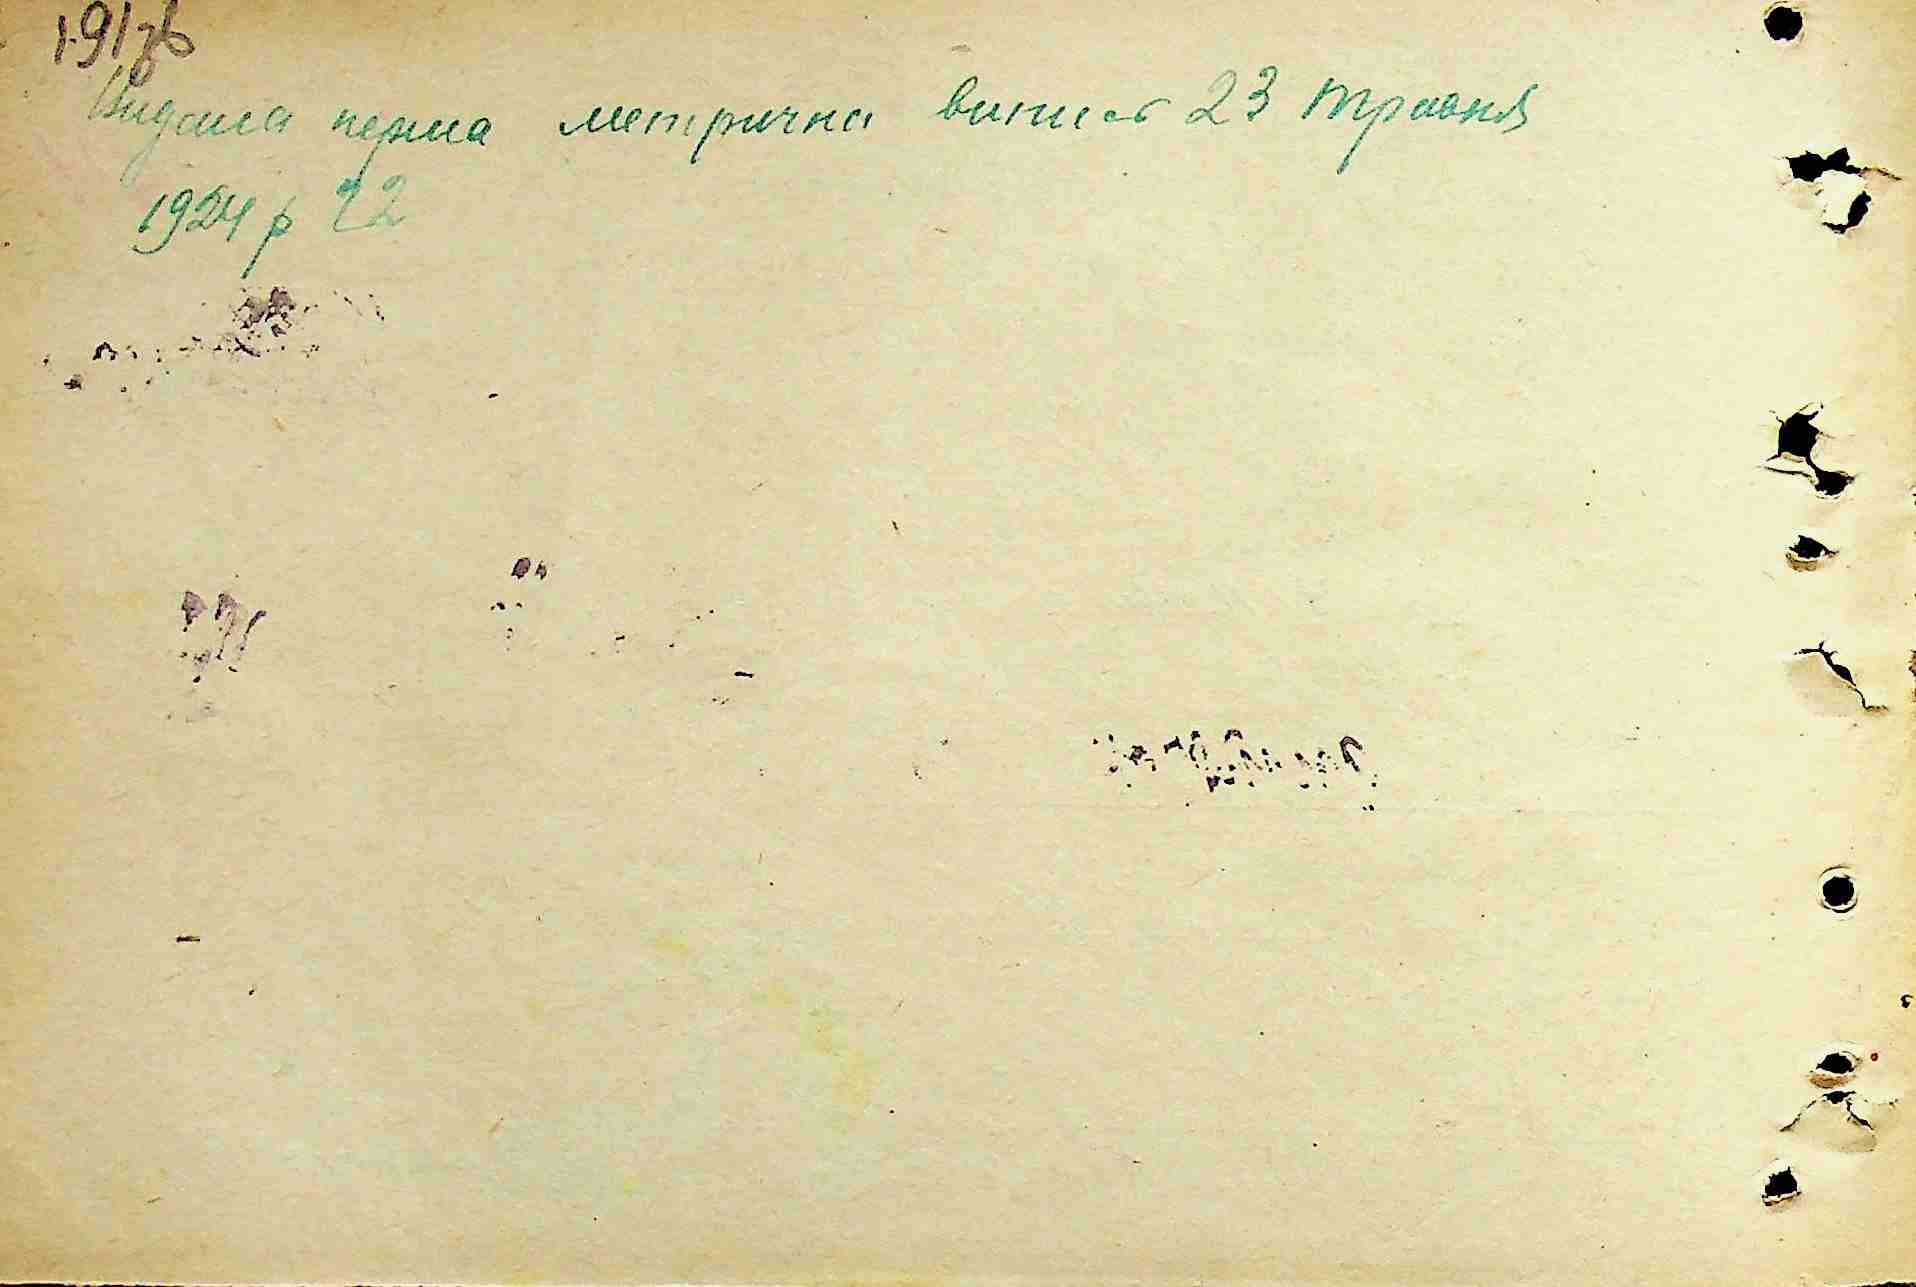 191зв
Видана перша метрична випись 23 травня
1924 р 22